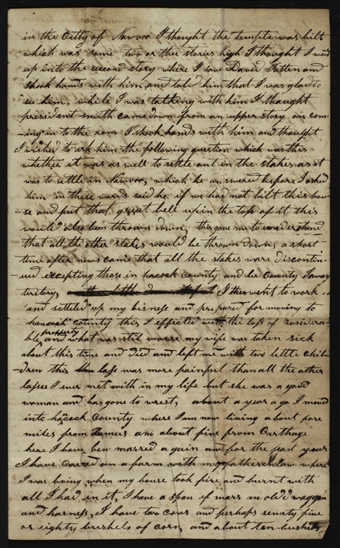 in the Citty of Navoo I thought the temple was bilt
which was some two or thre stories high I thought I went
up into the second story there I saw David Patten and
shook hands with him and told him that I was glad to
se him, while I was talking with him I thought
president smith came down from an upper story on com
ing in to the room I shook hands with him and thought
I wished to ask him the following question which was this
whether it was as well to settle out in the stakes as it
was to settle in Navoo, which he answered before I asked
him in these words said he if we had not bilt this hou-
se and put that great bell up in the top of it this
would also been thrown down, this gave me to understand
that all the other stakes would be thrown down, a short
time after news came that all the stakes ware discontin-
ued excepting those in hacock county and lee County Ioway
teritory I then went to work
and settled up my bisness and prepared for moving to
hancock county this I effected with the loss of considera-
property
ble, and what was still worse my wife was taken sick
about this time and died and left me with two little chil-
dren this loss was more painful than all the other
losses I ever met with in my life but she was a good
woman and has gone to rest, about a year ago I moved
into hacock County where I am now living about
miles from am about five from Carthage
here I have ben marred again and for the past year
I have on a farm with my father-in-law where
I was living when my house took fire and burnt with
all I had in it, I have a span of mars an old waggon
and harness, I have two cows and perhaps seventy five
or eighty bushels of corn, and about ten bushels